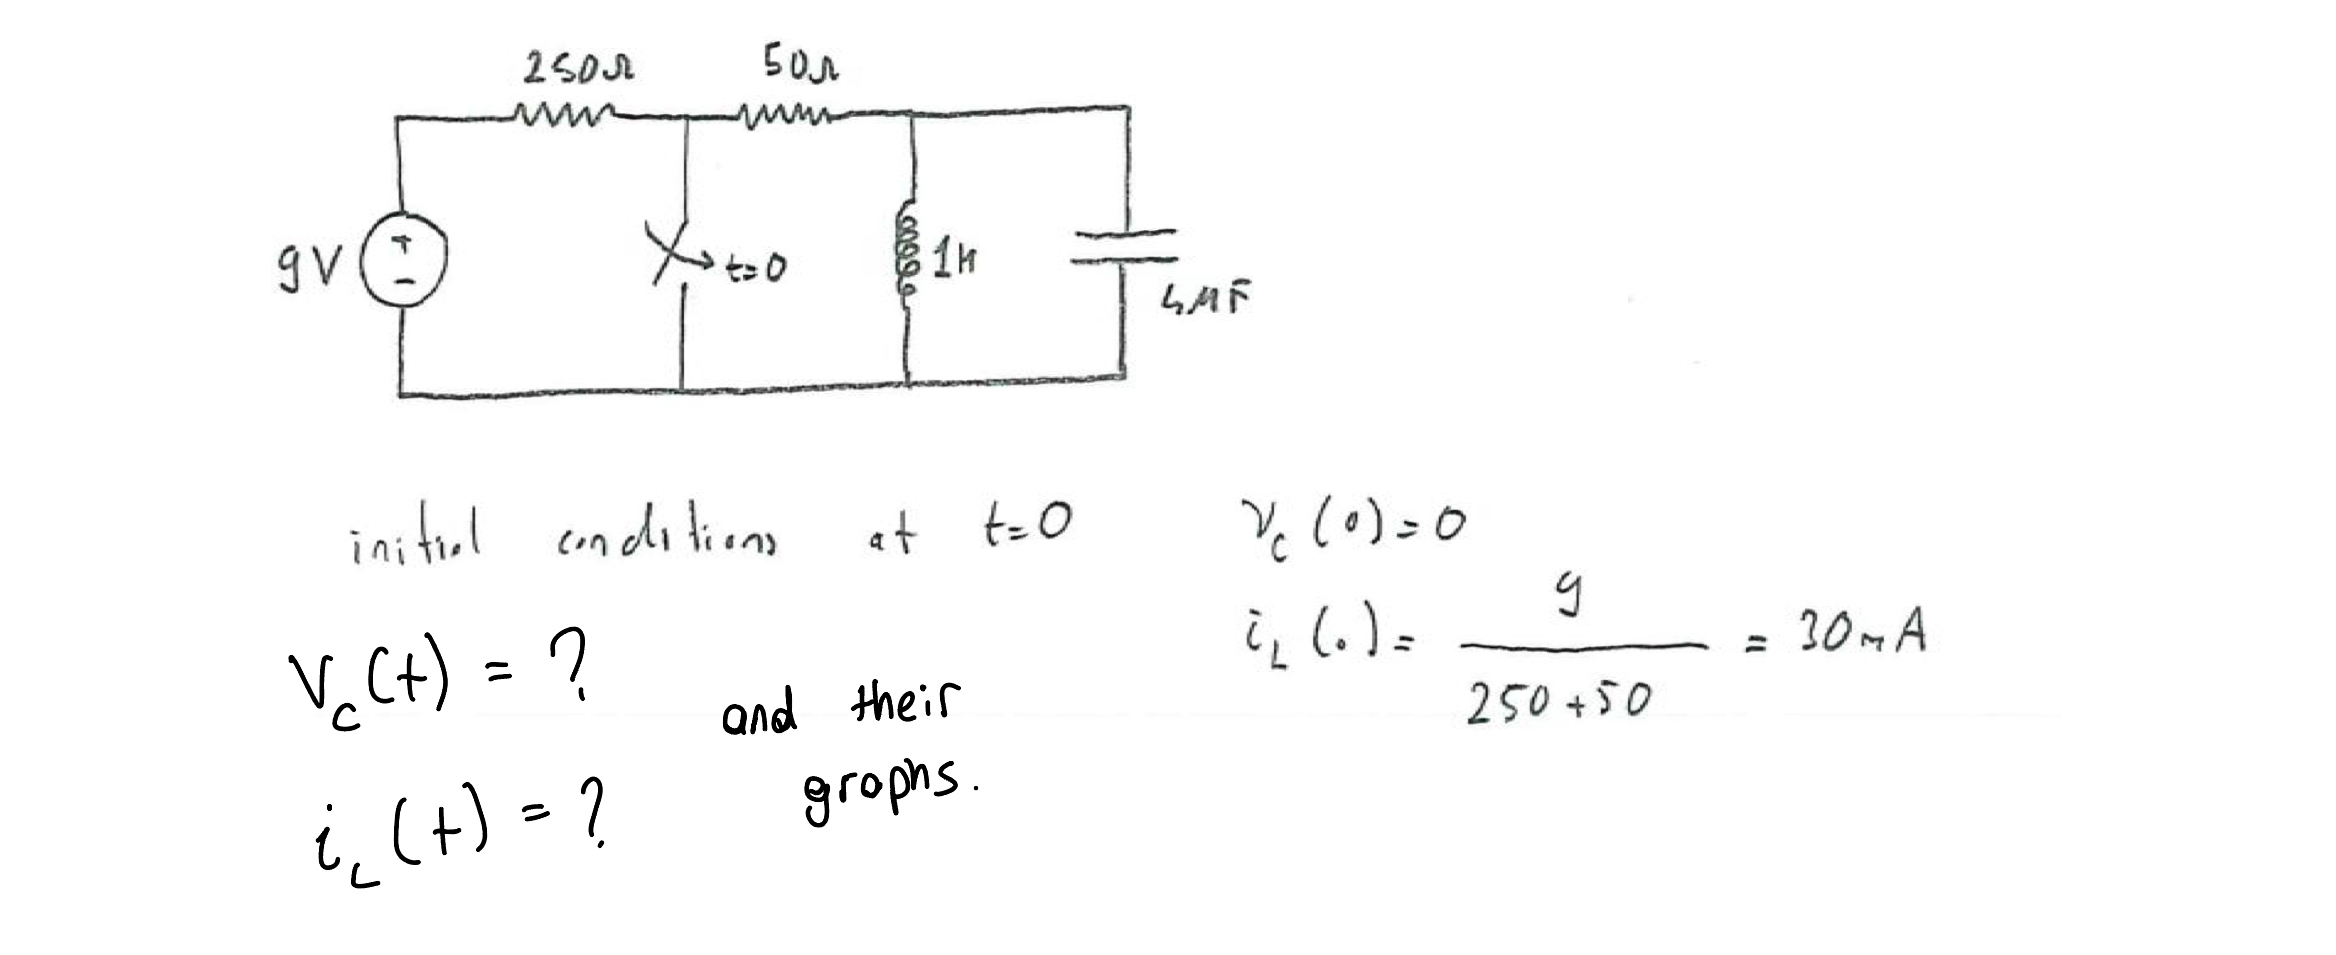 250Ω 50Ω
9V + - t=0 1H
4μF
initial conditions at t=0 Vc(0)=0
iL(0)= 9 / 250+50 = 30mA
Vc(t) = ?
and their
graphs.
iL(t) = ?